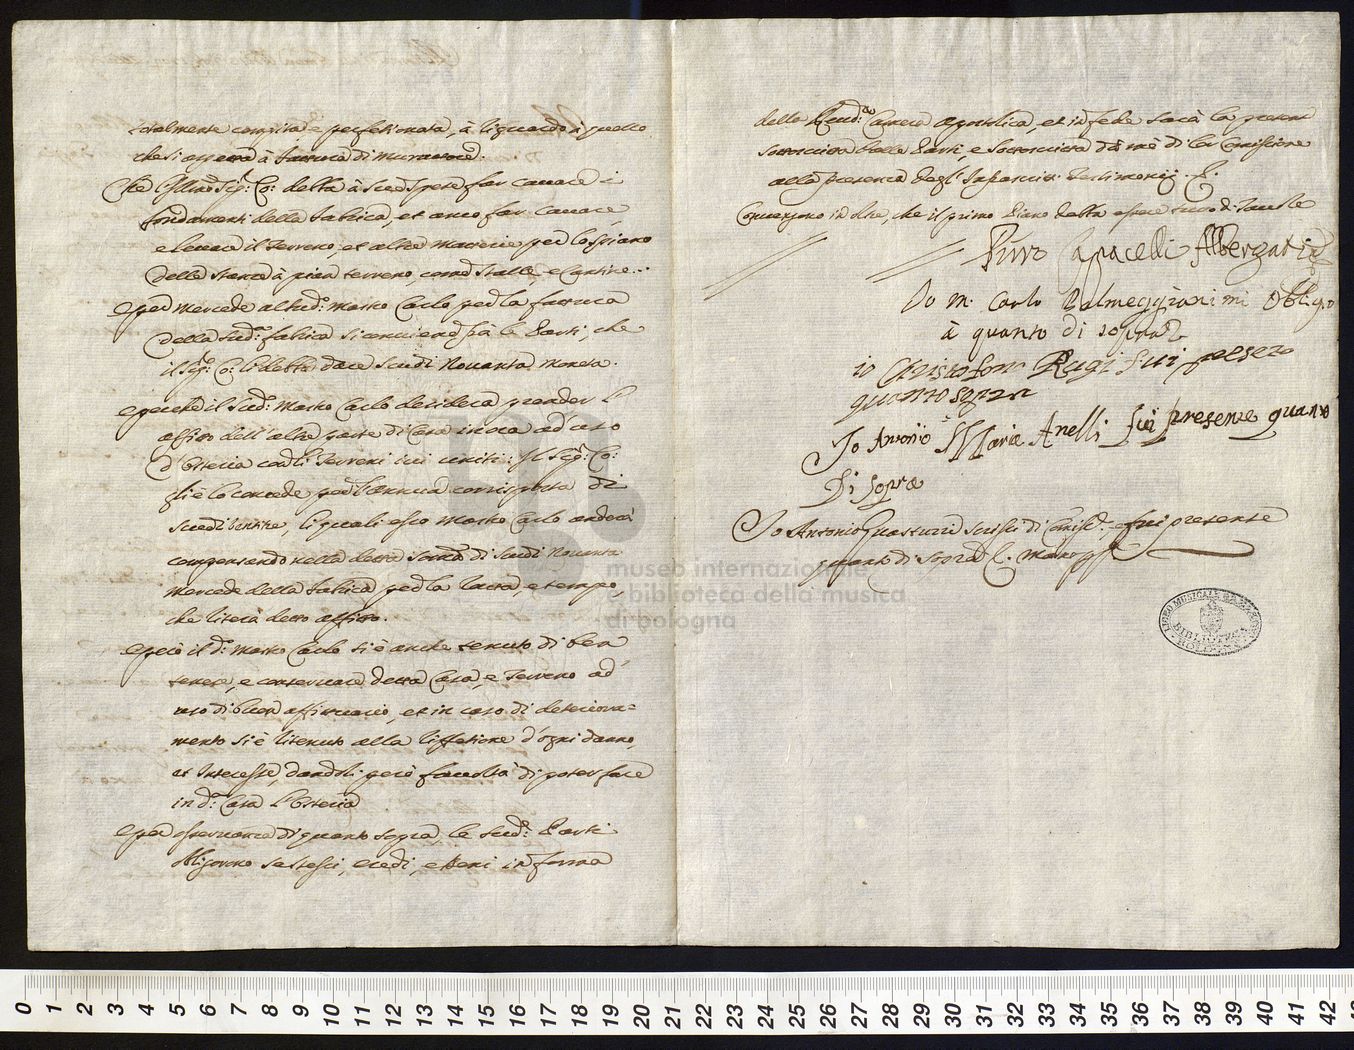 totalmente compita, e perfetionata, à riguardo à quello
che si aspetta à fattura di Muratore.
Che l'Illmo Sig.r Co: debba à sue spese far cavare i
fondamenti della fabrica, et anco far cavare,
e levare il terreno, et altre materie per lo spiano
delle stanze à pian terreno, come stalle, e Cantine
e per mercede al sud.o Mastro Carlo per la fattura
della sud.a fabrica si conviene frà le Parti, che
il Sig.r Co: li debba dare Scudi Novanta moneta.
e perche il Sud.o Mastro Carlo desidera prender l'
affitto dell'altra parte di Casa ad uso
d'Osteria con li Terreni ivi uniti: Il Sig.r Co:
gli è lo concede per l'annua corrisposta di
scudi, li quali esso Mastro Carlo anderà
compensando nella detta somma di Scudi Novanta
mercede della fabrica, per la rata, e tempo,
che terrà detto affitto.
e però il d.o Mastro Carlo si è anche tenuto di ben
tenere, e conservare detta Casa, e Terreno ad
uso di buon affittuario, et in caso di deteriora=
mento si è tenuto alla d'ogni danno,
et Interesse, dandoli però facoltà di poter fare
in d.a Casa l'Osteria
e per osservanza di quanto sopra, le sud.e Parti
obligorono se stessi, eredi, e beni in forma
della Rend.a Camera Apostolica, et in fede sarà la presente
sottoscritta dalle Parti, e sottoscritta da mè di lor Comissione
alla presenza degl'Infrascritti Testimonij.
Convengono in oltre, che il primo Piano debba essere
Pirro Capacelli Albergati
Io M. Carlo Dalmeggiani mi Obligo
à quanto di sopra
io Cristoforo Rugi fui presente
quanto sopra
Io Antonio Maria Anelli fui presente quanto
Di sopra
Io Antonio Guastuzzi scrissi di Comiss.e, e fui presente
quanto di sopra
museo internazionale
e biblioteca della musica
di bologna
LICEO MUSICALE
BIBLIOTECA
BOLOGNA
0 1 2 3 4 5 6 7 8 9 10 11 12 13 14 15 16 17 18 19 20 21 22 23 24 25 26 27 28 29 30 31 32 33 34 35 36 37 38 39 40 41 42